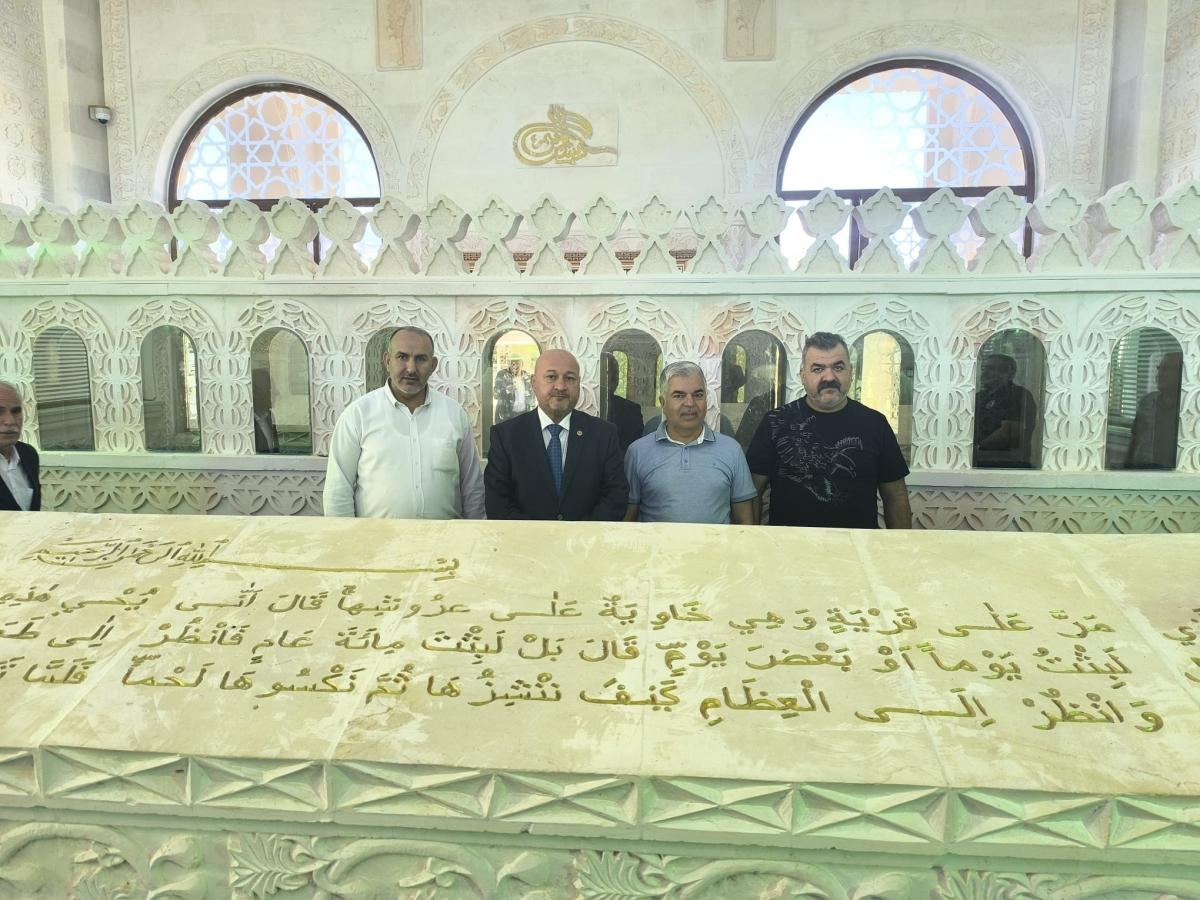 بسم الله الرحمن الرحيم
مَرَّ عَلٰى قَرْيَةٍ وَهِيَ خَاوِيَةٌ عَلٰى عُرُوشِهَا قَالَ اَنّٰى يُحْيي هٰذِهِ
لَبِثْتُ يَوْماً اَوْ بَعْضَ يَوْمٍ قَالَ بَلْ لَبِثْتَ مِائَةَ عَامٍ فَانْظُرْ اِلٰى
وَانْظُرْ اِلَى الْعِظَامِ كَيْفَ نُنْشِزُهَا ثُمَّ نَكْسُوهَا لَحْماً فَلَمَّا